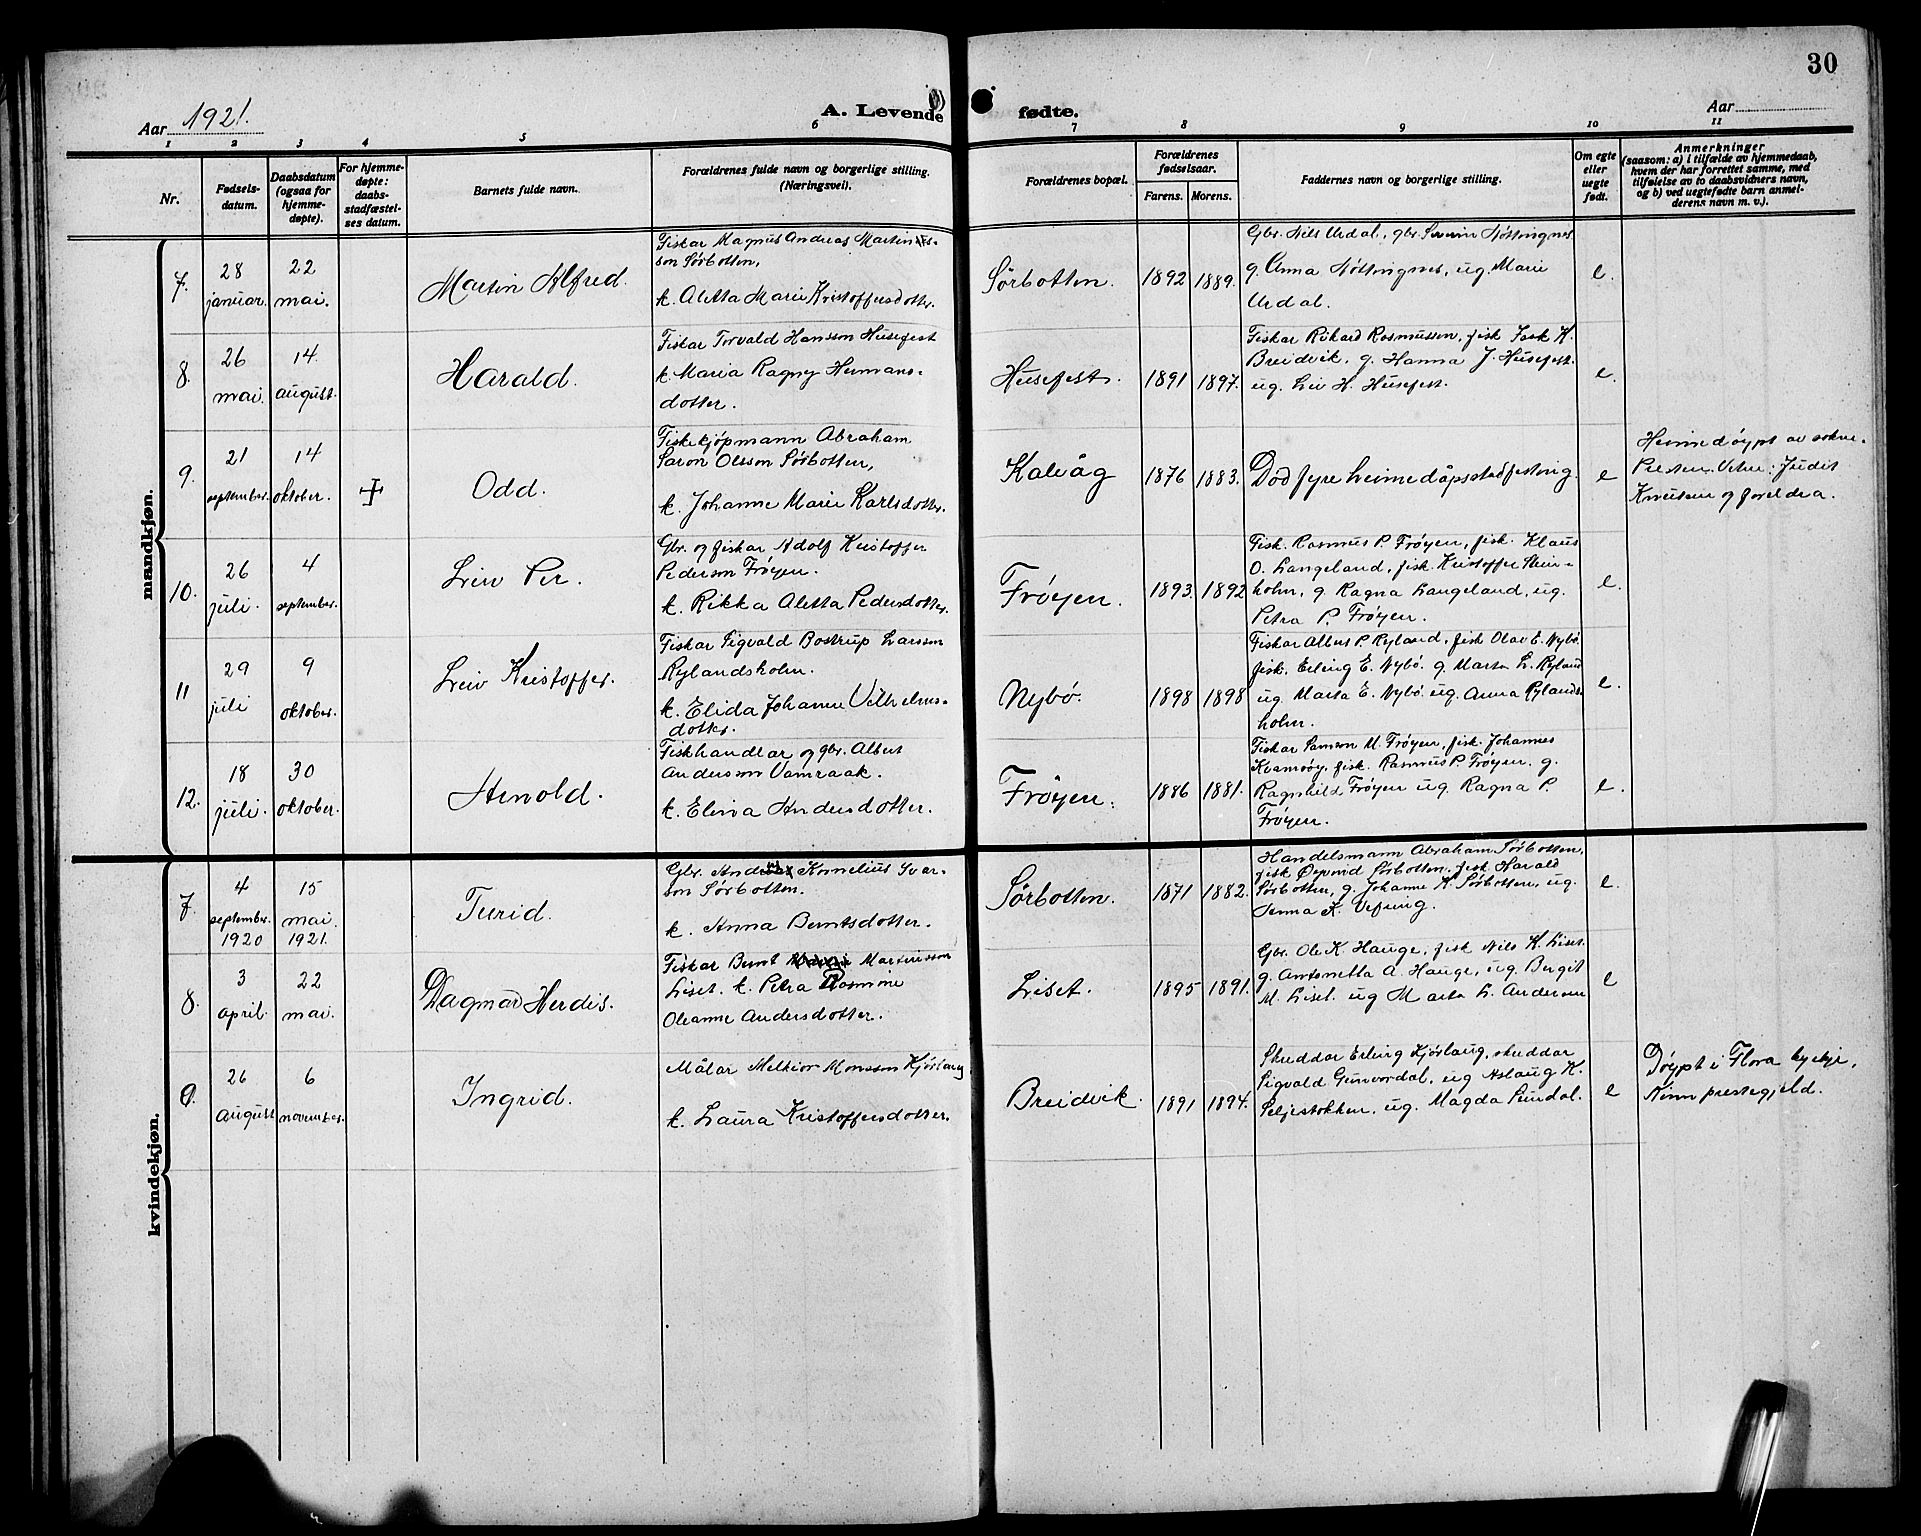 30
Aar 1921.
A. Levende fødte.
Aar
1 2 3 4 5 6 7 8 9 10 11
Nr.
Fødsels-
datum.
Daabsdatum
(ogsaa for
hjemme-
døpte).
For hjemme-
døpte:
daabs-
stadfæstel-
ses datum.
Barnets fulde navn.
Forældrenes fulde navn og borgerlige stilling.
(Næringsvei).
Forældrenes bopæl.
Forældrenes
fødselsaar.
Farens. Morens.
Faddernes navn og borgerlige stilling.
Om egte
eller
uegte
født.
Anmerkninger
(saasom: a) i tilfælde av hjemmedaab,
hvem der har forrettet samme, med
tilføielse av to daabsvidners navn,
og b) ved uegtefødte barn anmel-
derens navn m. v.).
mandkjøn.
7.
28
januar.
22
mai.
Martin Alfred.
Fiskar Magnus Andreas Martinus-
son Sørbotten,
k. Aletta Marie Kristoffersdotter.
Sørbotten.
1892 1889.
Gbr. Nils Urdal, gbr. Severin Nøttingnes
g. Anna Nøttingnes, ug. Marie
Urdal.
e.
8.
26
mai.
14
august.
Harald.
Fiskar Torvald Hansson Husefest
k. Maria Ragny Hermans-
dotter.
Husefest.
1891 1897.
Fiskar Rikard Rasmussen, fisk. Isak K.
Breidvik, g. Hanna J. Husefest.
ug. Liv H. Husefest.
e.
9.
21
september.
14
oktober.
Odd.
Fiskekjøpmann Abraham
Saron Olsson Sørbotten,
k. Johanne Marie Karlsdotter.
Kalvåg
1876 1883.
Død fyre heimedåpsstadfesting.
e
Heimedøypt av sokne-
presten. Vitne: Judit
Knutsen og foreldra.
10.
26
juli.
4
september.
Leiv Per.
Gbr. og fiskar Adolf Kristoffer
Pederson Frøyen.
k. Rikka Aletta Pedersdotter.
Frøyen.
1893. 1892
Fisk. Rasmus P. Frøyen, fisk. Klaus
O. Langeland, fisk. Kristoffer Stein-
holm, g. Ragna Langeland, ug.
Petra P. Frøyen.
e.
11
29
juli
9
oktober.
Leiv Kristoffer.
Fiskar Sigvald Bostrup Larsson
Rylandsholm.
k. Elida Johanne Vilhelms-
dotter.
Nybø.
1898 1898
Fiskar Albert P. Ryland, fisk Olav E. Nybø.
fisk. Erling E. Nybø. g. Marta L. Ryland
ug. Marta E. Nybø. ug. Anna Rylands-
holm.
e.
12.
18
juli.
30
oktober.
Arnold.
Fiskhandlar og gbr. Albert
Anderson Vamraak.
k. Elina Andersdotter.
Frøyen.
1886 1881.
Fiskar Samson M. Frøyen, fisk. Johannes
Kvamsøy, fisk. Rasmus P. Frøyen. g.
Ragnhild Frøyen ug. Ragna P.
Frøyen.
e.
kvindekjøn.
7.
4
september.
1920
15
mai.
1921.
Turid.
Gbr. Kornelius Ivar-
son Sørbotten.
k. Anna Berntsdotter.
Sørbotten.
1871 1882.
Handelsmann Abraham Sørbotten,
fisk Øyvind Sørbotten. fisk Harald
Sørbotten, g. Johanne K. Sørbotten, ug.
Jenna K. Vefring.
e.
8.
3
april.
22
mai.
Dagmar Herdis.
Fiskar Bernt Martinusson
Liset. k. Petra Rasmine
Oleanne Andersdotter.
Liset.
1895 1891.
Gbr. Ole K. Hauge, fisk Nils K. Liset.
g. Antonetta A. Hauge, ug. Bergit
M. Liset. ug Marta L. Andersen
e
9.
26
August
6
november.
Ingrid.
Målar Melkior Monsson Kjørlaug
k. Laura Kristoffersdotter.
Breidvik.
1891 1894.
Skreddar Erling Kjørlaug, skreddar
Sigvald Gunvordal, ug Aslaug K.
Seljestokken, ug. Magda Sundal.
e
Døypt i Flora kyrkje,
Kinn prestegjeld.